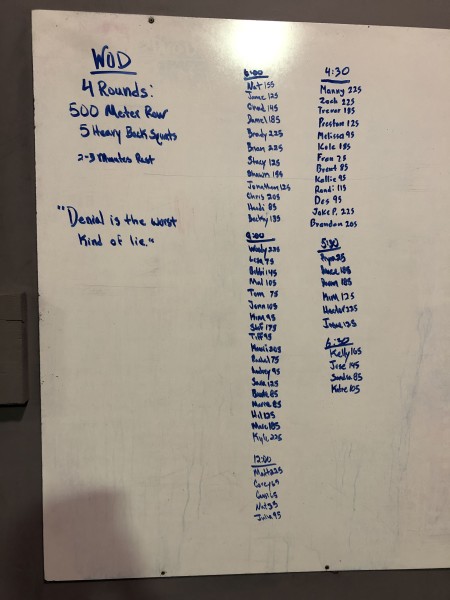 WOD
4 Rounds:
500 Meter Row
5 Heavy Back Squats
2-3 Minutes Rest
"Denial is the worst
Kind of lie."
6:00
Nat 155
Jamie 125
Chad 145
Daniel 185
Brady 225
Brian 225
Stacy 125
Shawn 155
Jonathan 125
Chris 205
Heidi 85
Becky 135
9:00
Woody 225
Lisa 75
Bobbi 145
Mal 105
Tom 75
Jenn 105
Kim 95
Stef 175
Tiff 95
205
Rachel 75
Audrey 95
Sara 125
Brooke 85
Maree 85
Hil 125
Marc 185
Kyle 225
12:00
Matt 225
Corey 65
65
Nat 95
Julie 95
4:30
Manny 225
Zach 225
Trevor 185
Preston 125
Melissa 95
Kole 185
Fran 75
Brent 85
Kallie 95
Randi 115
Des 95
Jake P. 225
Brandon 205
5:30
Bruce 185
185
Kim 125
Hector 225
125
6:30
Kelly 165
Jose 145
Sandra 85
Katie 105